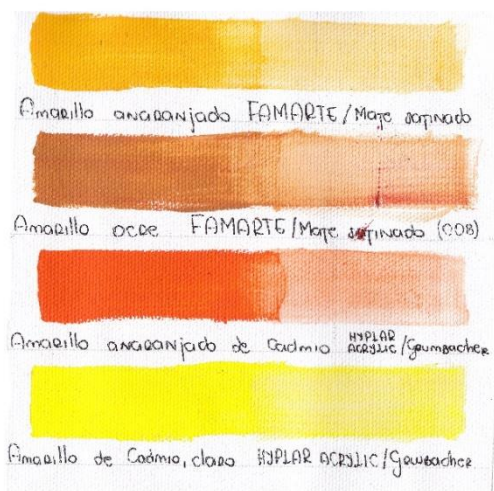 Amarillo anaranjado FAMARTE/Mate satinado
Amarillo ocre FAMARTE/Mate satinado (008)
Amarillo anaranjado de Cadmio HYPLAR ACRYLIC/Grumbacher
Amarillo de Cadmio, claro HYPLAR ACRYLIC/Grumbacher